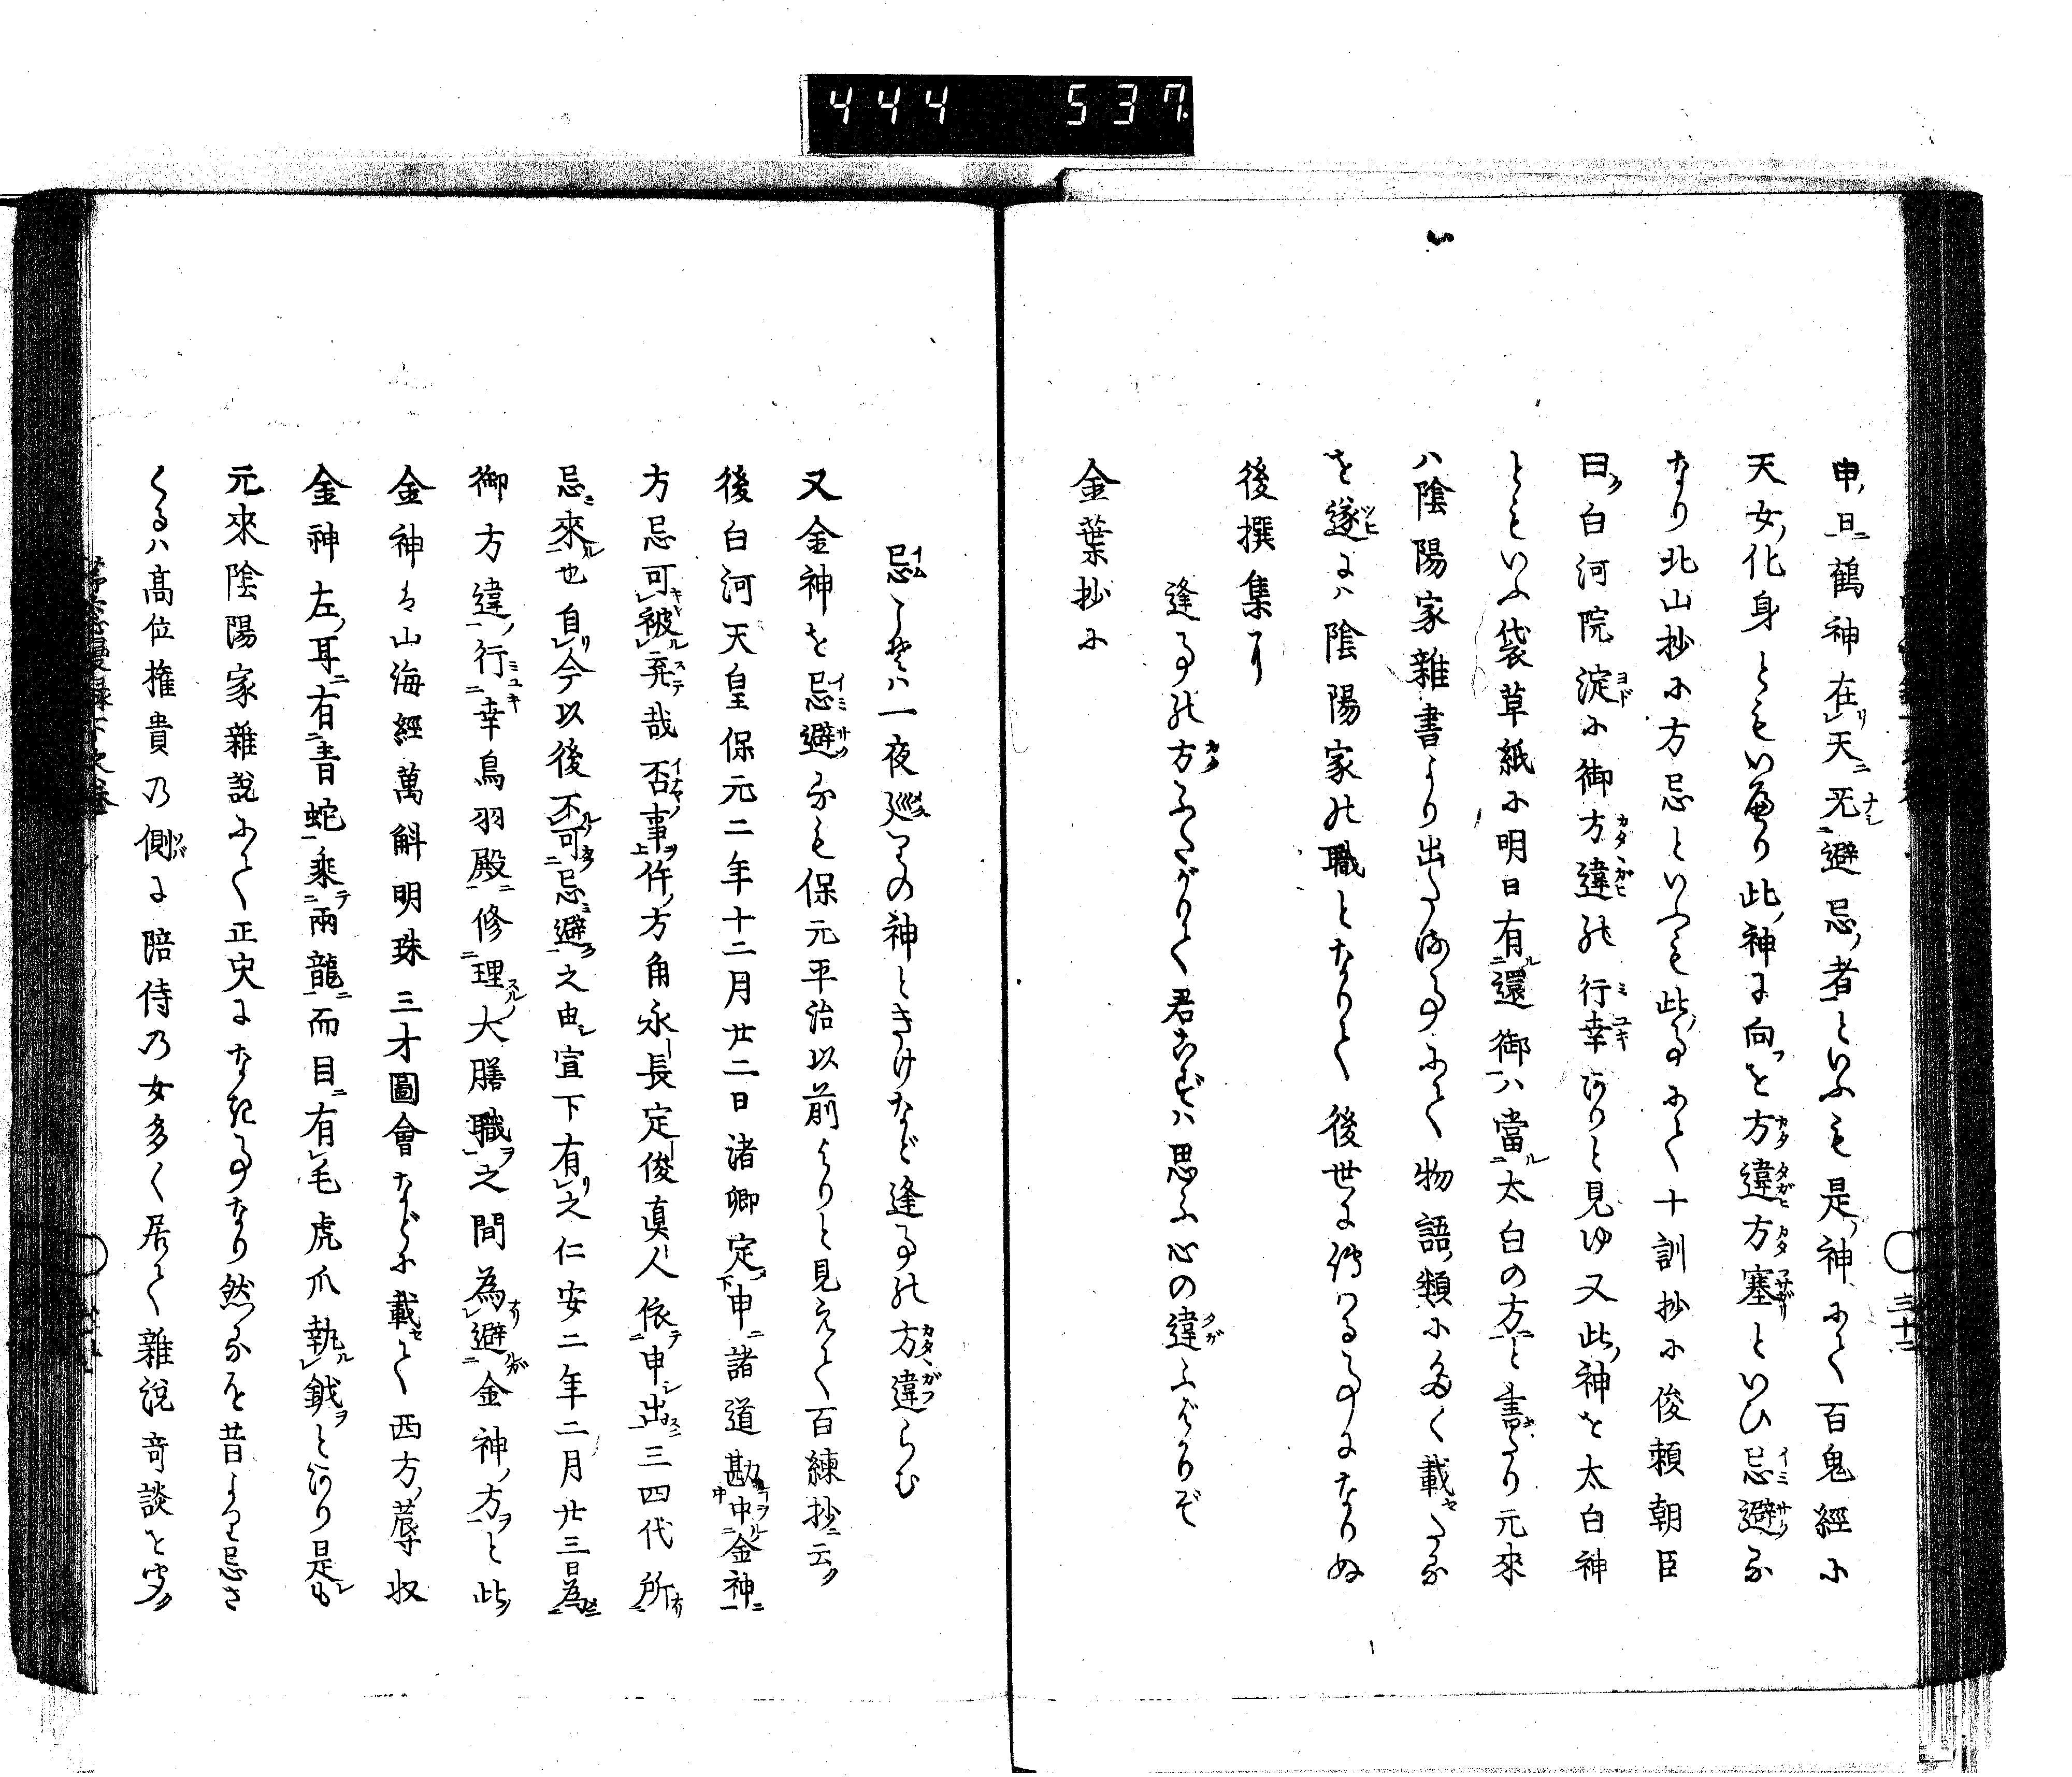 444 537
申ノ日ニ鶴神在リ天ニ无シ避忌ノ者といふも是ノ神にて百鬼經に
天女ノ化身ともいへり此ノ神に向フを方違方塞といひ忌避る
なり北山抄に方忌といふも此ノ事にて十訓抄に俊頼朝臣
曰ク白河院淀に御方違の行幸ありと見ゆ又此ノ神を太白神
ともいふ袋草紙に明日有ル還御ハ當ル太白の方ニと書キたり元來
ハ陰陽家雜書より出たる事にて物語ノ類に多く載セたる
を遂にハ陰陽家の職となりて後世に傳はる事になりぬ
後撰集に
逢事の方ふたがりて君こずハ思ふ心の違ふばかりぞ
金葉抄に
忌こそハ一夜巡りの神ときけなど逢事の方違らむ
又金神を忌避るも保元平治以前よりと見えて百練抄ニ云ク
後白河天皇保元二年十二月廿二日諸卿定メ申諸道勘申金神ニ
方忌可被弃哉否事件ノ方角永長定俊真人依テ申シ出スニ三四代所
忌ミ來ル也自リ今以後不可忌避之由シ宣下有リ之仁安二年二月廿三日為
御方違ノ行幸鳥羽殿ニ修理スル大膳職ヲ之間為避ルガ金神ノ方ヲと此ノ
金神は山海經萬斛明珠三才圖會などに載セて西方ノ蓐收
金神左ノ耳ニ有青蛇乘テ兩龍ニ而目ニ有毛虎爪執ル鉞ヲとあり是レも
元來陰陽家雜說にて正史になき事なり然るを昔より忌さ
くるハ高位權貴の側に陪侍の女多く居て雜説竒談を守ク
三十二